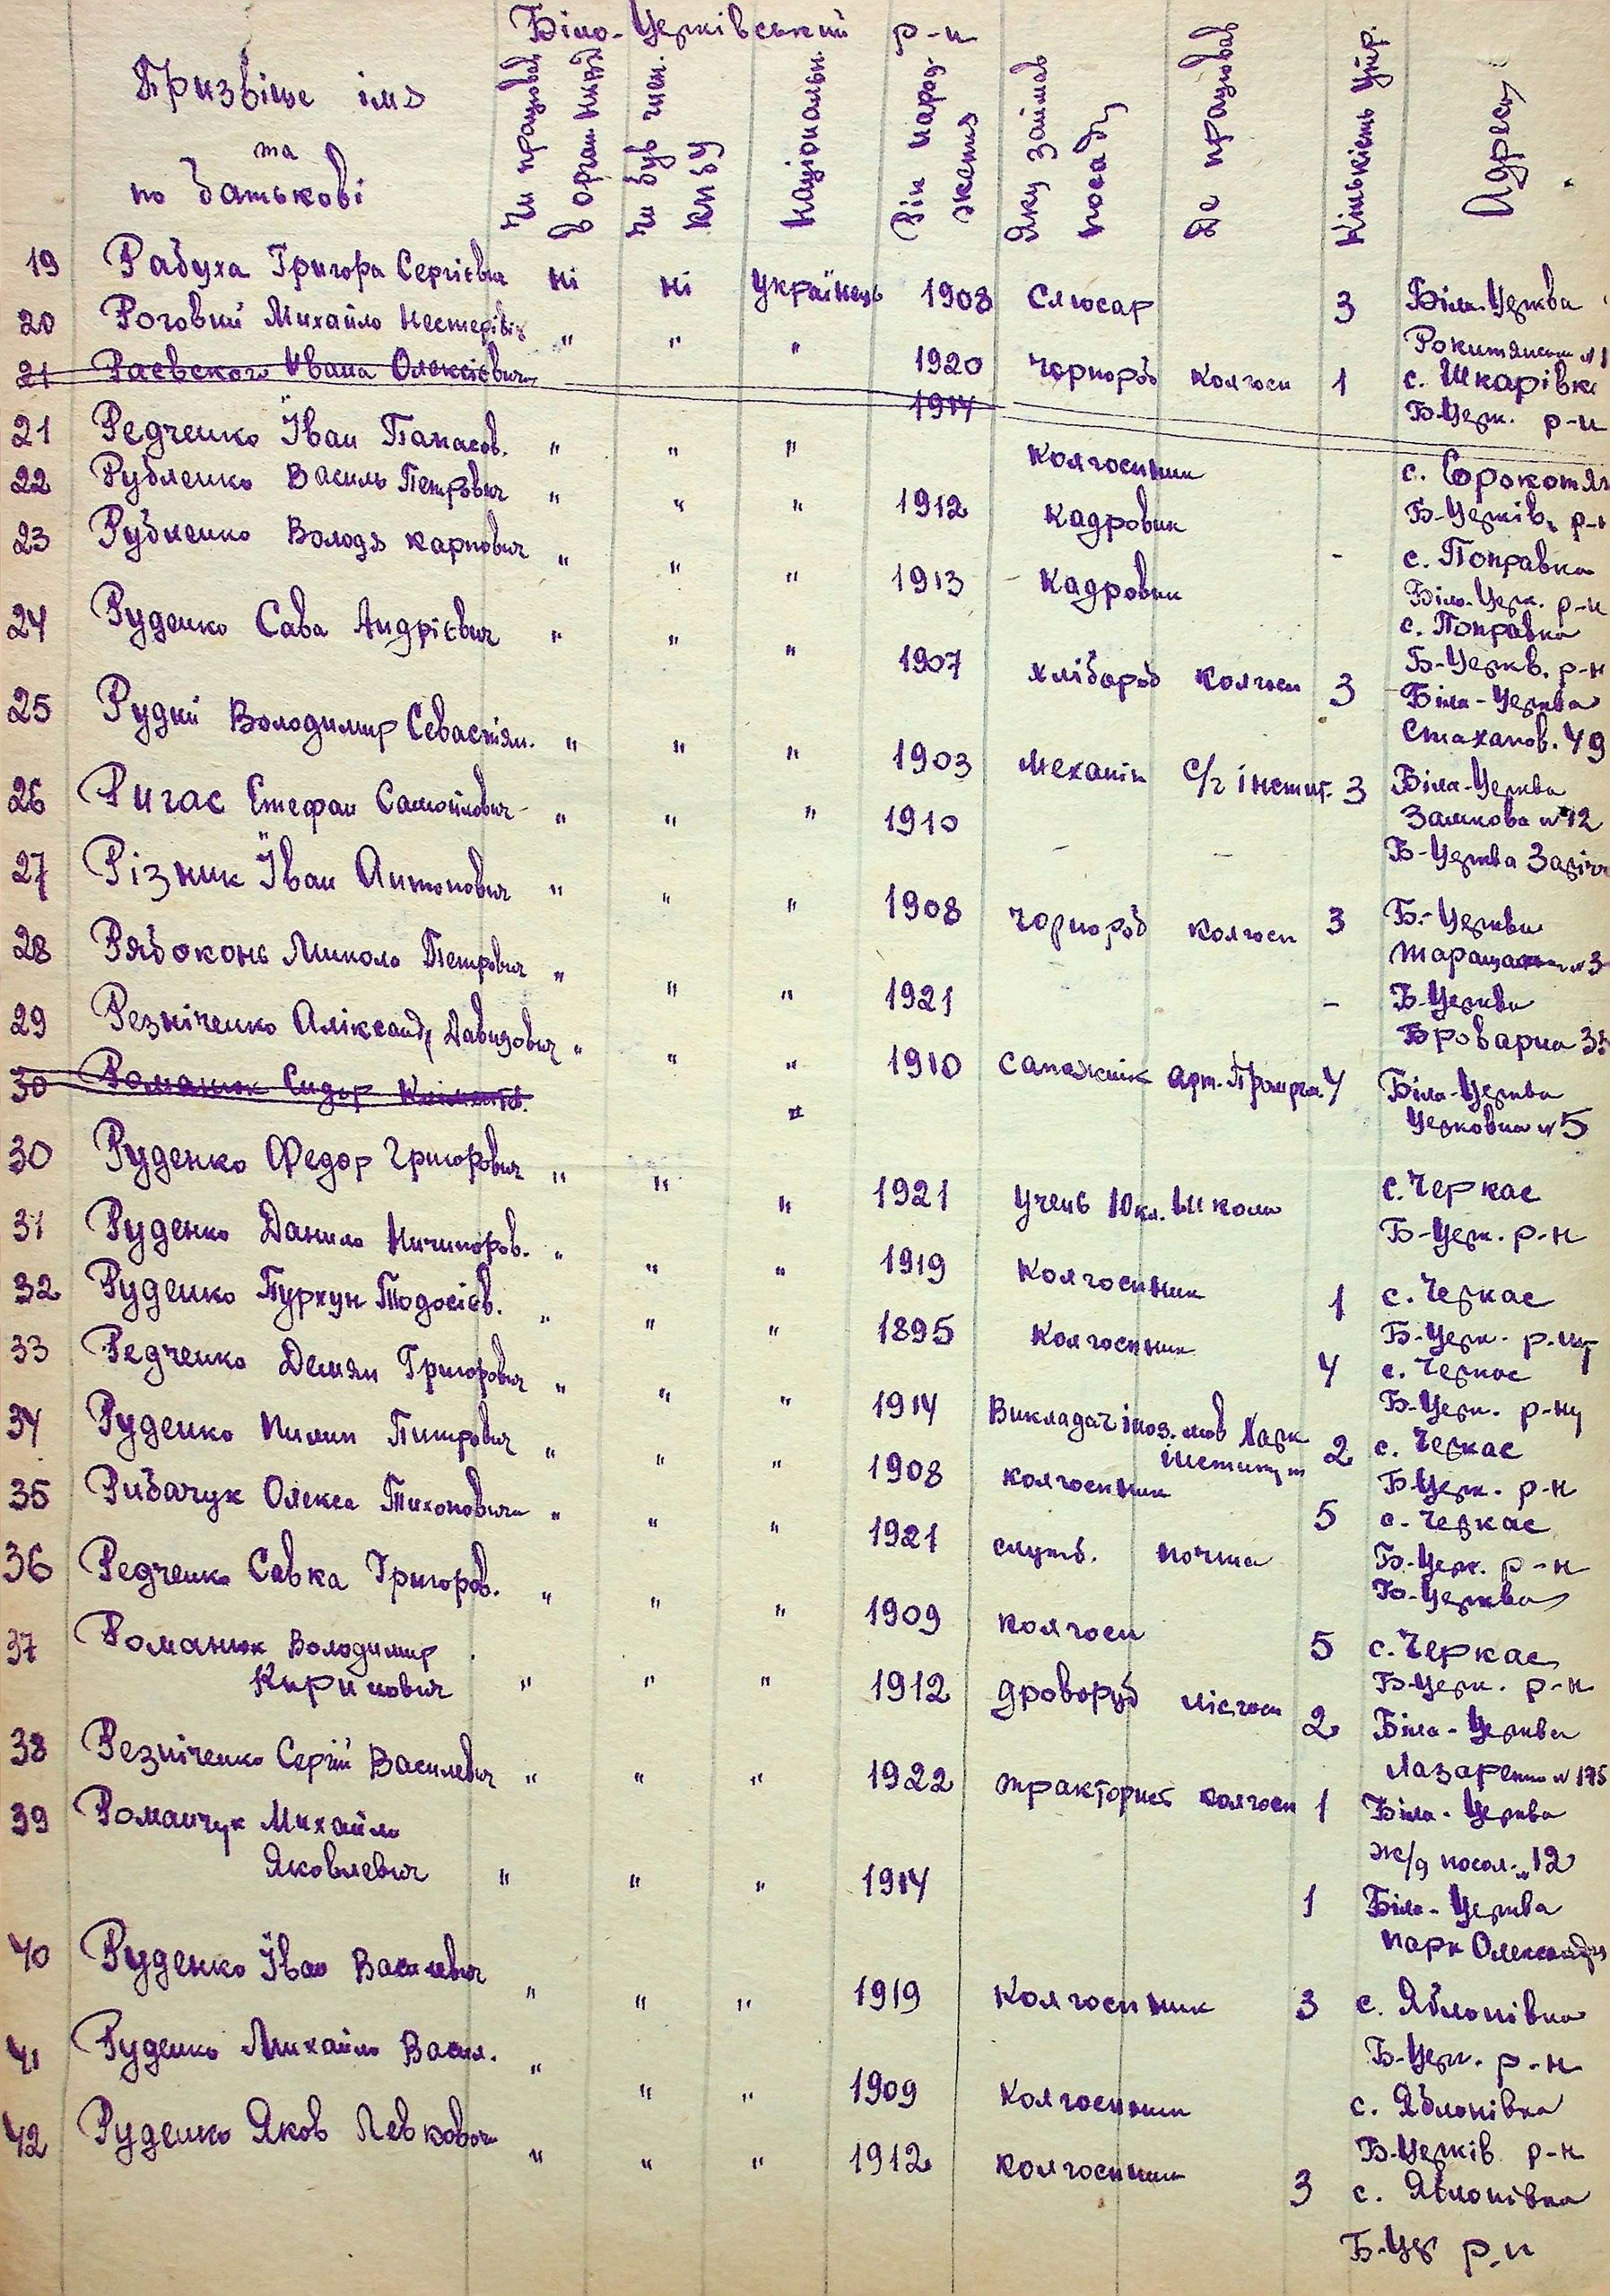 Біло-Церківський р-н
Призвіще імя та по батькові
Чи працював в орган. НКВД
Чи був член. КПбУ
Національн.
Рік народження
Яку займав посаду
Де працював
Кількість утр.
Адреса
19 Рабуха Григора Сергієвич ні ні Українець 1908 Слюсар 3 Біла-Церква
20 Роговий Михайло Нестерівич " " " 1920 Чорнороб колгосп 1 с. Шкарівка
Б-Церк. р-н
21 Раєвского Ивана Олексієвича 1914
21 Редченко Їван Панасов. " " " колгоспник
22 Рубленко Василь Петрович " " " 1912 Кадровик
Б-Церків. р-н
23 Рубленко Володя карпович " " " 1913 Кадровик - с. Поправка
Біло-Церк. р-н
24 Руденко Сава Андрієвич " " " 1907 хлібороб колгосп 3 с. Поправка
Б-Церкв. р-н
25 Рудий Володимир Севастіян. " " " 1903 механік С/г інстит. 3 Біла-Церква
Стаханов. 49
26 Ригас Стефан Самойлович " " " 1910 - - Біла-Церква
Замкова №12
27 Різник Їван Антонович " " " 1908 Чорнороб колгосп 3 Б-Церква
28 Рябоконь Микола Петрович " " " 1921 - Б-Церква
Броварна
29 Резніченко Аліксанд Давидович " " " 1910 сапожнік Арт. 4 Біла-Церква
Церковна № 5
30 Романюк Сидор "
30 Руденко Федор Григорович " " " 1921 Учень 10 кл. школи с. Черкас
Б-Церк. р-н
31 Руденко Данило Ничипоров. " " " 1919 Колгоспник 1 с. Черкас
Б-Церк. р-ну
32 Руденко Тодосієв. " " " 1895 Колгоспник 4 с. Черкас
Б-Церк. р-ну
33 Редченко Демян Григорович " " " 1914 Викладач іноз. мов Харк інститут 2 с. Черкас
Б-Церк. р-н
34 Руденко Пилип Питрович " " " 1908 колгоспник 5 с. Черкас
Б-Церк. р-н
35 Рибачук Олекса Тихоновича " " " 1921 служб. почта Б-Церква
36 Редченко Савка Григоров. " " " 1909 колгосп 5 с. Черкас
Б-Церк. р-н
37 Романюк Володимир
Кирилович " " " 1912 дроворуб лісгосп 2 Біла-Церква
Лазаренко № 175
38 Резніченко Сергій Василевич " " " 1922 тракторист колгосп 1 Біла-Церква
ж/д посол. №12
39 Романчук Михайло
Яковлевич " " " 1914 1 Біла-Церква
парк Олександрія
40 Руденко Їван Василевич " " " 1919 Колгоспник 3 с. Яблонівка
Б-Церк. р-н
41 Руденко Михайло Васил. " " " 1909 Колгоспник с. Яблонівка
Б-Церків р-н
42 Руденко Яков Левкович " " " 1912 колгоспник 3 с. Яблонівка
Б-Цер р-н